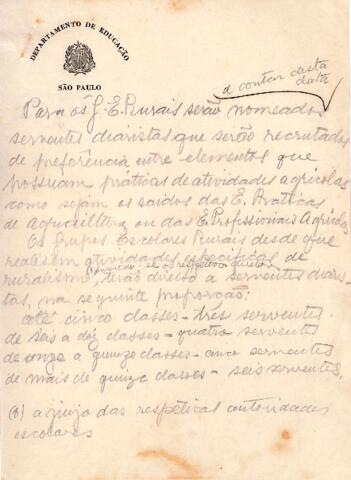 DEPARTAMENTO DE EDUCAÇÃO
SÃO PAULO
a contar desta
data
Para os G. E. Rurais serão nomeados
serventes diaristas que serão recrutados
de preferência entre elementos que
possuam práticas de atividades agrícolas
como sejam os saidos das E. Práticas
de Agricultura ou das E. Profissionais Agrícolas
Os Grupos Escolares Rurais desde que
realisem atividades específicas de
ruralismo, terão direito a serventes diaris-
tas, na seguinte proporção:
até cinco classes - três serventes
de seis a dez classes - quatro serventes
de onze a quinze classes - cinco serventes
de mais de quinze classes - seis serventes.
a juizo das respetivas autoridades
escolares